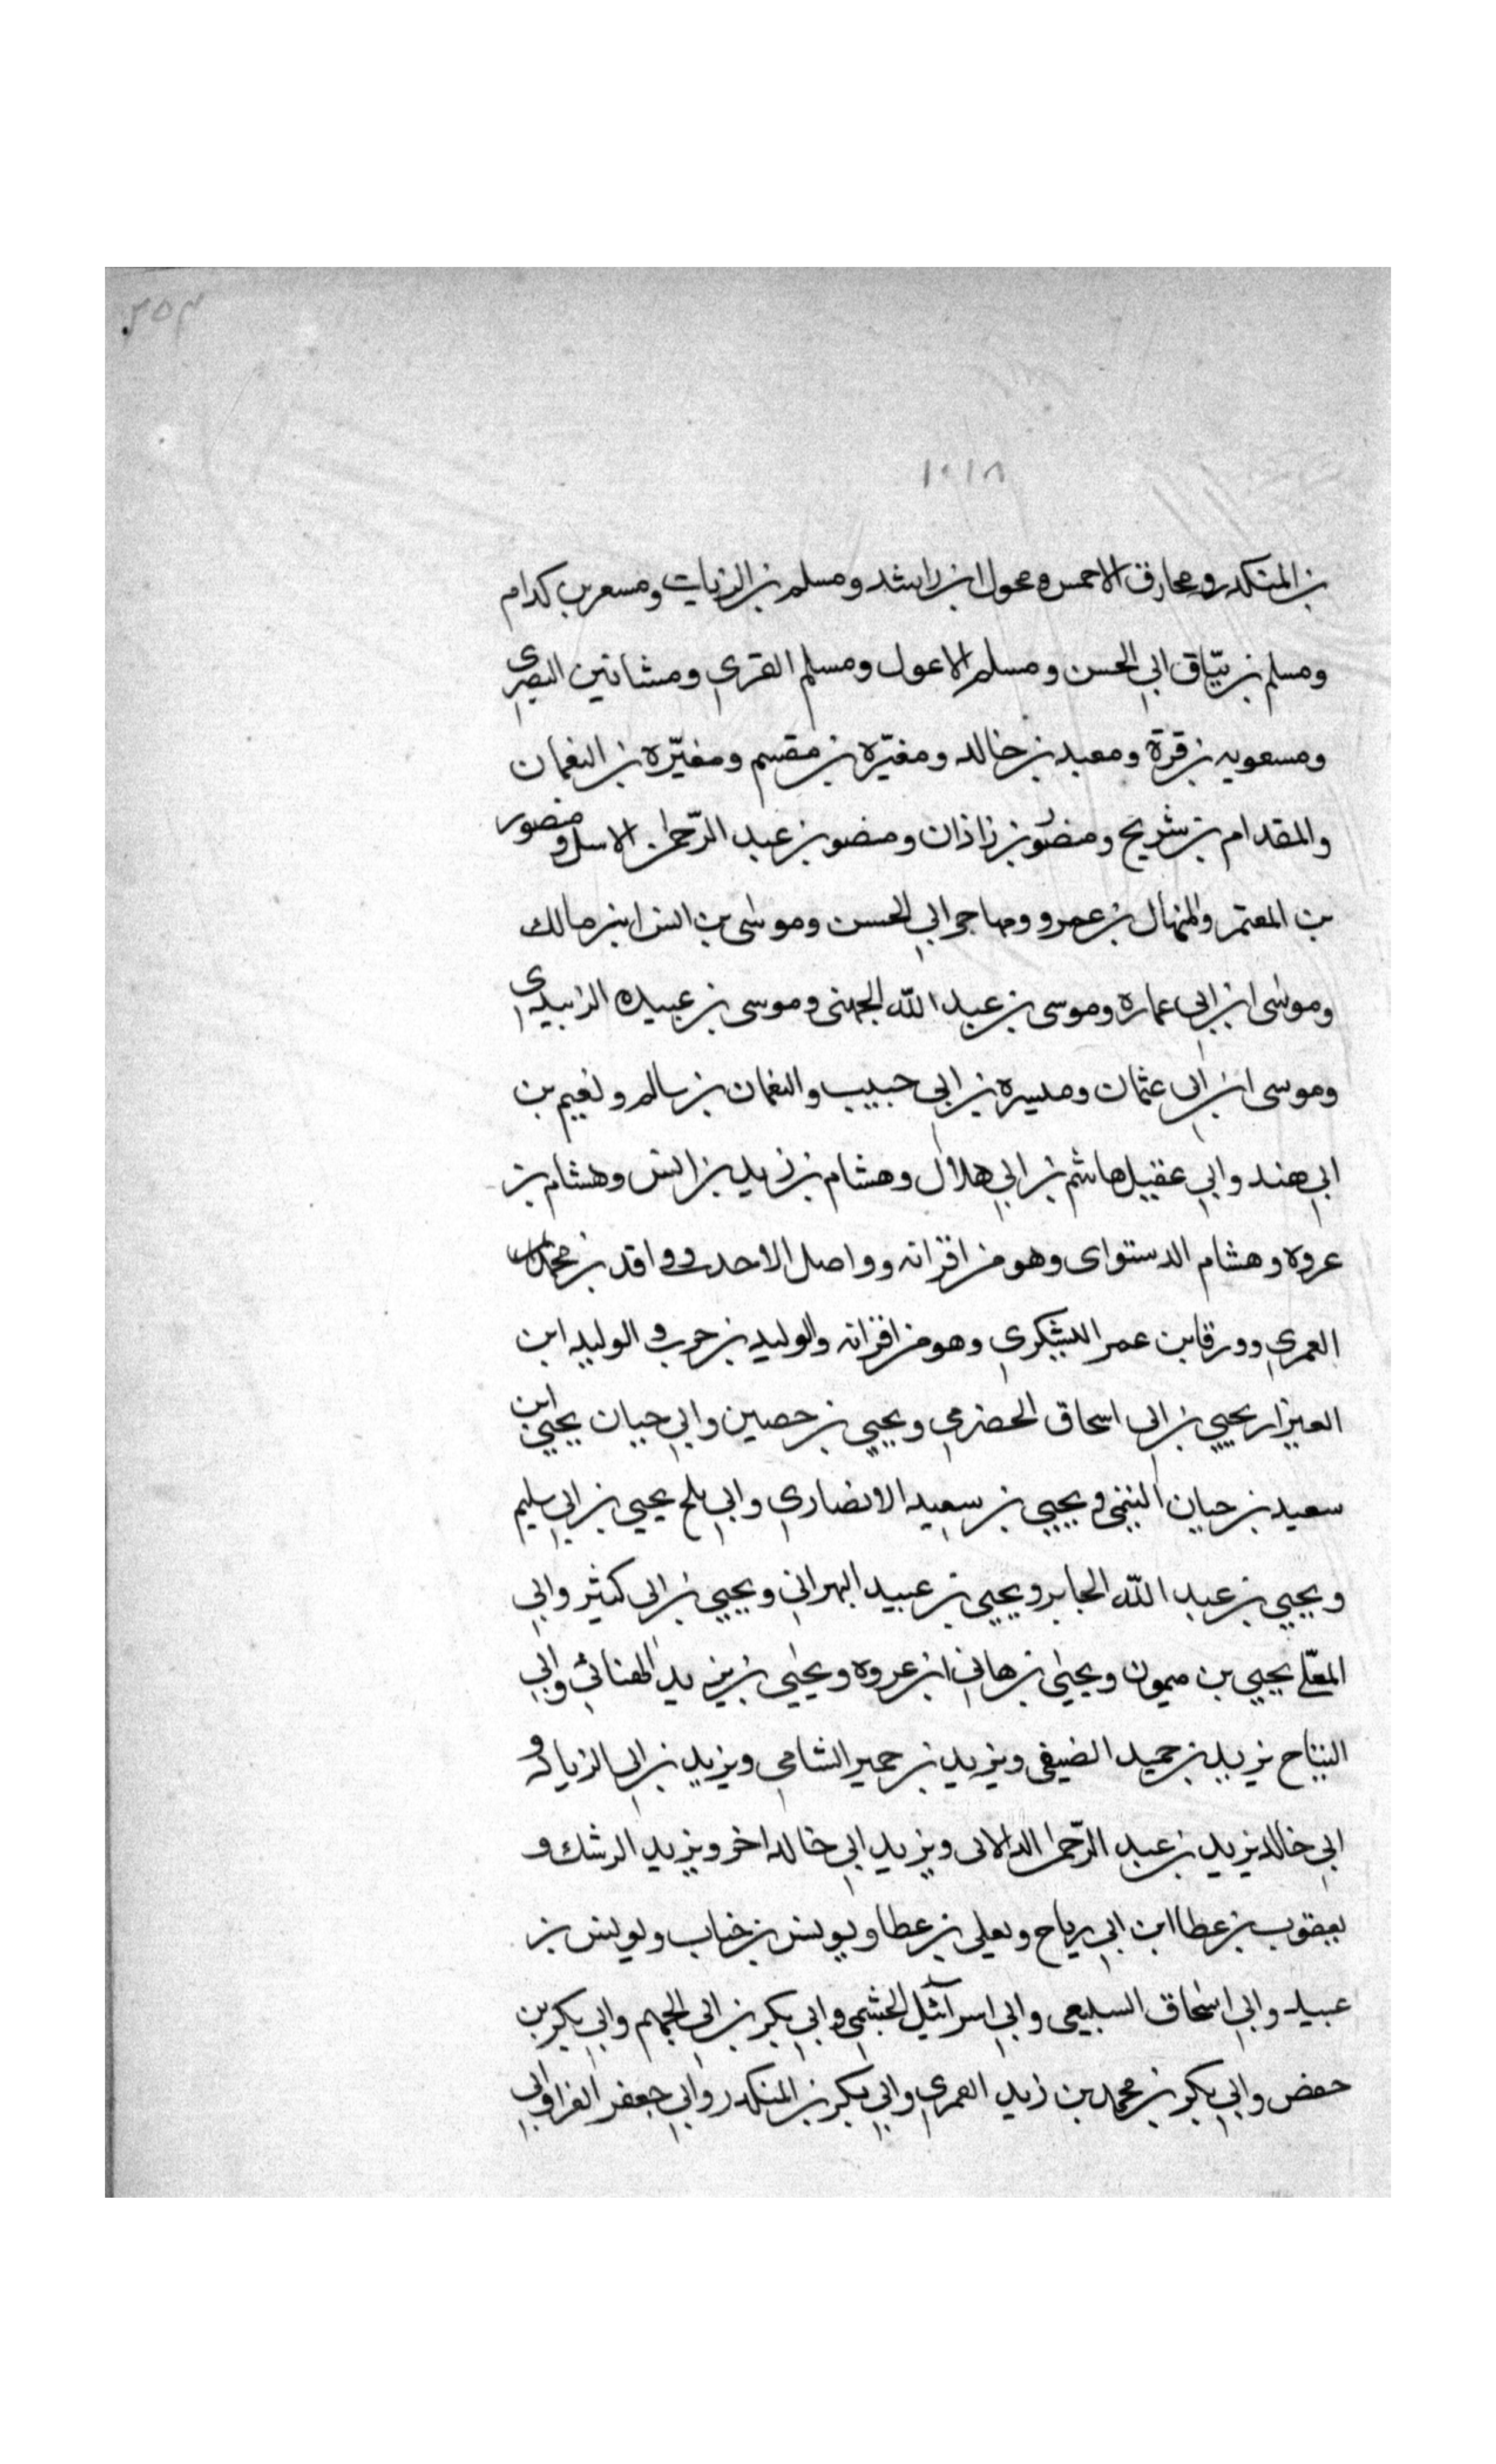 ٢٥٣
١٠١٨
بن المنكدر ومحارق الاحمس ومحول ابن راشد ومسلم بن الزيات ومسعر بن كدام
ومسلم بن يتّاق ابي الحسن ومسلم الاعول ومسلم القري ومشاتين البصرى
ومسعويه بن قرة ومعبد بن خالد ومغيّره بن مقسم ومغيّره بن النعمان
والمقدام بن شريح ومنصور بن زاذان ومنصور بن عبد الرّحمن الاسل ومنصور
بن المعتمر والمنهال بن عمرو ومهاجر ابي الحسن وموسى بن انس ابن مالك
وموسى ابن ابي عماره وموسى بن عبد الله الجهنى وموسى بن عبيده الزبيدى
وموسى ابن ابي عثمان وميسره بن ابي حبيب والنعمان بن سالم ونعيم بن
ابي هند وابي عقيل هاشم بن ابي هلال وهشام بن زيد بن انس وهشام بن
عروه وهشام الدستواى وهو من اقرانه وواصل الاحدب وواقد بن محمد
العمري وورقا بن عمر اليشكري وهو من اقرانه والوليد بن حرب والوليد ابن
العيزار يحيي بن ابي اسحاق الحضرمي ويحيي بن حصين وابي حيان يحيي ابن
سعيد بن حيان التيمى ويحيي بن سعيد الانصاري وابي بلج يحيي بن ابي سليم
ويحيي بن عبد الله الجابر ويحيي بن عبيد البهراني ويحيي بن ابي كثير وابي
المعلّى يحيي بن ميمون ويحيى بن هاني ابن عروه ويحيى بن يزيد الهنائي وابي
التياح يزيد بن حميد الضيفى ويزيد بن حمير الشامي ويزيد بن ابي الزياد و
ابي خالد يزيد بن عبد الرّحمن الدالانى ويزيد ابي خالد اخر ويزيد الرشك و
يعقوب بن عطا ابن ابي رياح ويعلى بن عطا ويونس بن خباب ويونس بن
عبيد وابي اسحاق السبيعى وابي اسرآئيل الجشمي وابي بكر بن ابي الجهم وابي بكر بن
حفض وابي بكر بن محمد بن زيد العمري وابي بكر بن المنكدر وابي جعفر الفرا وابي